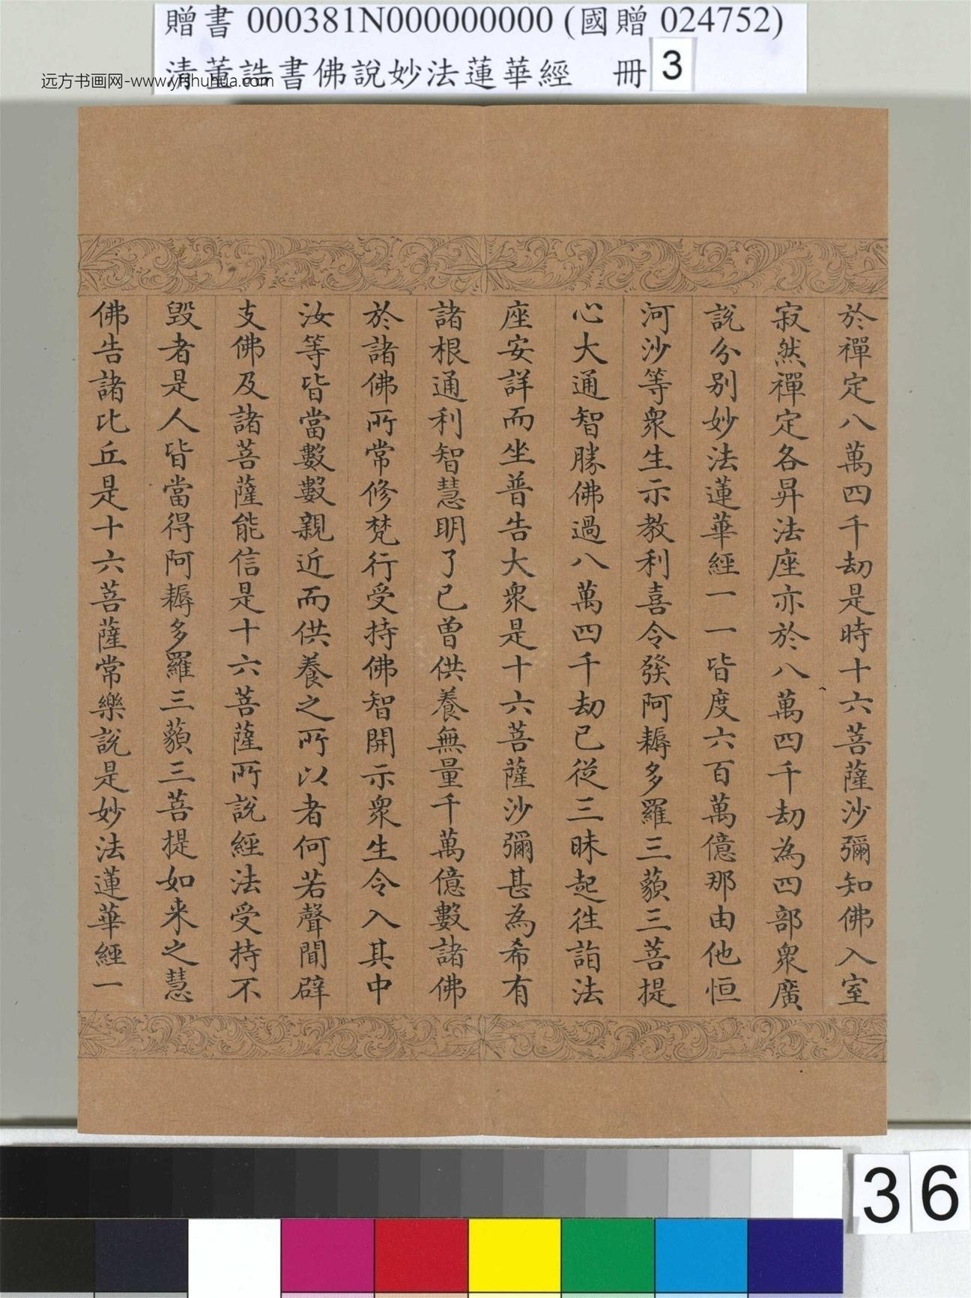 贈書 000381N000000000 (國贈 024752)
清董誥書佛說妙法蓮華經 冊 3
远方书画网-www.yfshuhua.com
於禪定八萬四千劫是時十六菩薩沙彌知佛入室
寂然禪定各昇法座亦於八萬四千劫為四部眾廣
說分別妙法蓮華經一一皆度六百萬億那由他恒
河沙等眾生示教利喜令發阿耨多羅三藐三菩提
心大通智勝佛過八萬四千劫已從三昧起往詣法
座安詳而坐普告大眾是十六菩薩沙彌甚為希有
諸根通利智慧明了已曾供養無量千萬億數諸佛
於諸佛所常修梵行受持佛智開示眾生令入其中
汝等皆當數數親近而供養之所以者何若聲聞辟
支佛及諸菩薩能信是十六菩薩所說經法受持不
毀者是人皆當得阿耨多羅三藐三菩提如来之慧
佛告諸比丘是十六菩薩常樂說是妙法蓮華經一
36